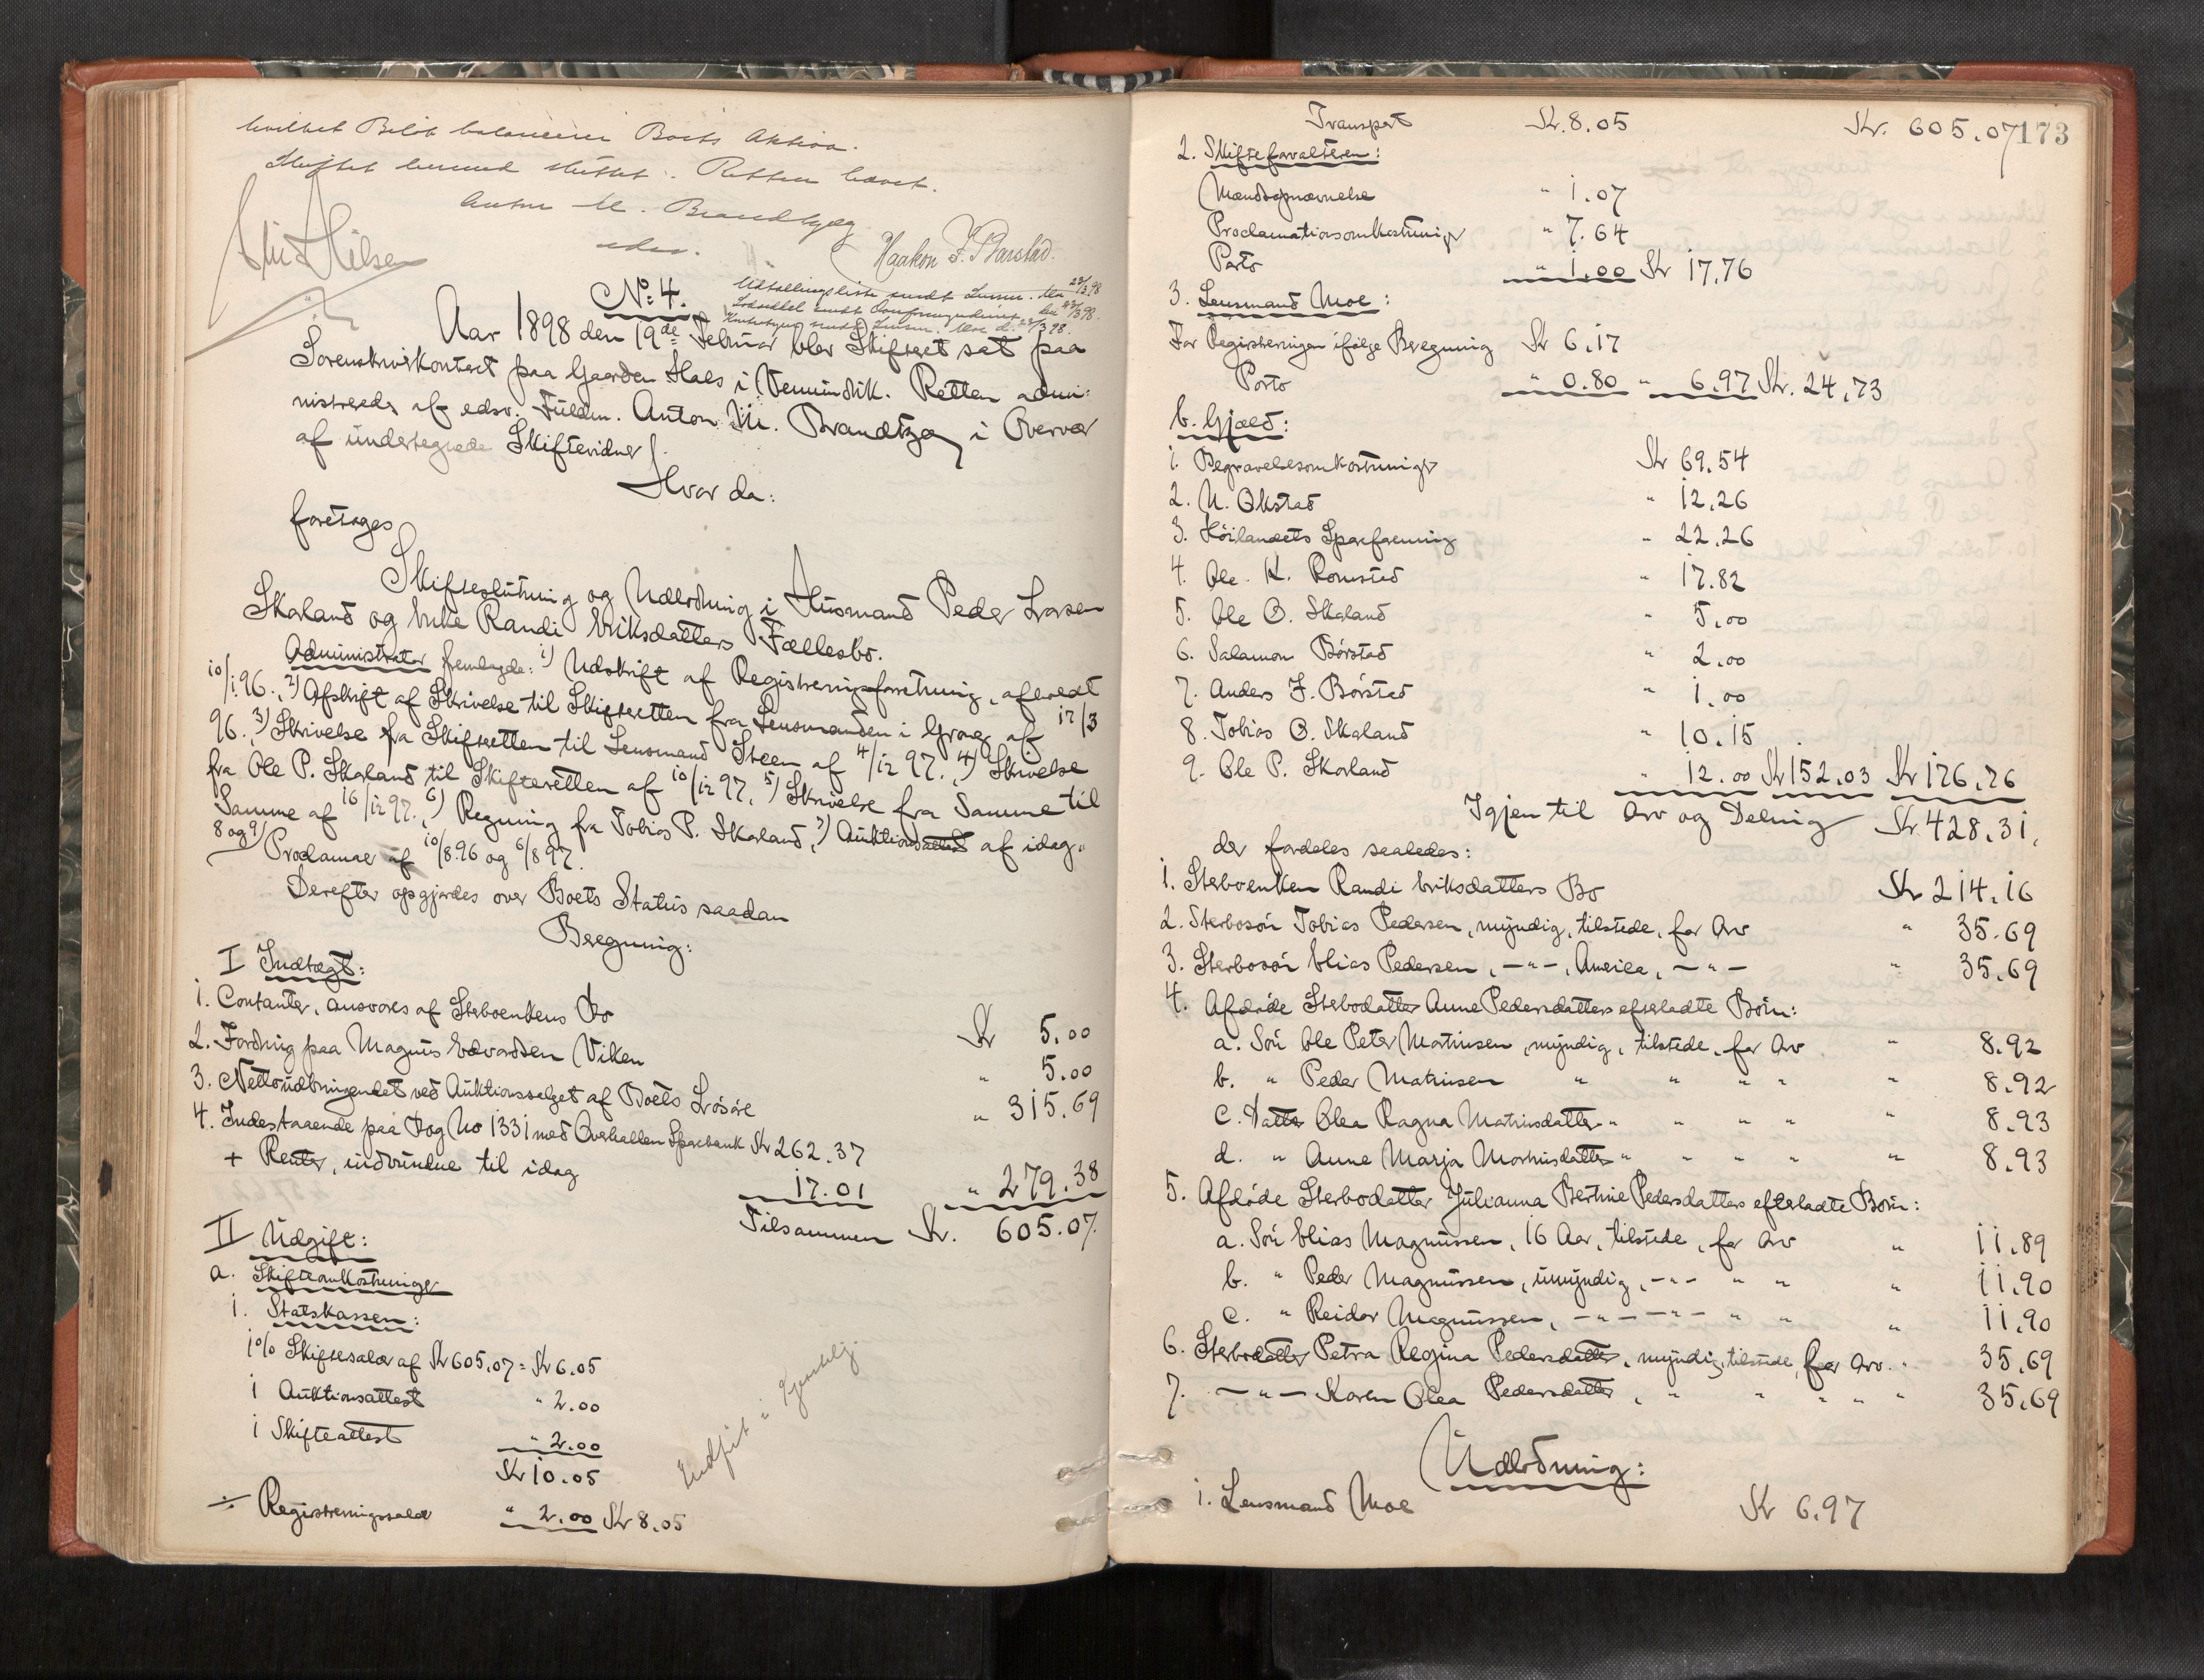 hvilket Beløb balancerer Boets Aktiva.
Skiftet hermed sluttet. Retten hævet.
Anton M. Brandtzæg
edsv.
Haakon J. Barstad.
No. 4.
Udlodningsliste sendt Lensm. Moe 23/3.98
Aar 1898 den 19de Februar blev Skifteret sat paa
Sorenskriverkontoret paa Gaarden Haes i Vemundvik. Retten admi-
nistreredes af edsv. Fuldm. Anton M. Brandtzæg i Overvær
af undertegnede Skiftevidner.
Hvor da:
foretoges
Skifteslutning og Udlodning i Husmand Peder Larsen
Skaland og Enke Randi Eriksdatters Fællesbo.
Administrator fremlagde: 1) Udskrift af Registreringsforretning, afholdt
10/1.96., 2) Afskrift af Skrivelse til Skifteretten fra Lensmanden i Grong af 17/3
96., 3) Skrivelse fra Skifteretten til Lensmand Steen af 4/12 97., 4) Skrivelse
fra Ole P. Skaland til Skifteretten af 10/12 97, 5) Skrivelse fra Samme til
Samme af 16/12 97., 6) Regning fra Tobias P. Skaland, 7) Auktionsattest af idag.
8 og 9) Proclamaer af 10/8.96 og 6/8 97.
Derefter opgjordes over Boets Status saadan
Beregning:
I Indtægt:
1. Contanter, ansvares af Sterboenkens Bo Kr 5.00
2. Fordring paa Magnus Edvardsen Viken " 5.00
3. Nettoudbringendet ved Auktionssalget af Boets Løsøre " 315.69
4. Indestaaende paa Bog No 1331 med Overhallen Sparebank Kr 262.37
+ Renter, indvundne til idag 17.01 " 279.38
Tilsammen Kr. 605.07.
II Udgift:
a. Skifteomkostninger
1. Statskassen:
1% Skiftesalær af Kr 605.07 = Kr 6.05
1 Auktionsattest " 2.00
1 Skifteattest " 2.00
Kr 10.05
÷ Registreringssalær " 2.00 Kr 8.05
173
Transport Kr. 8.05 Kr. 605.07
2. Skifteforvalteren:
Mandsopnævnelse " 1.07
Proclamationsomkostninger " 7.64
Porto " 1.00 Kr 17,76
3. Lensmand Moe:
For Registreringen ifølge Beregning Kr 6.17
Porto " 0.80 " 6.97 Kr. 24,73
b. Gjæld:
1. Begravelsesomkostninger Kr 69.54
2. N. Okstad " 12,26
3. Høilandets Spareforening " 22.26
4. Ole K. Romstad " 17.82
5. Ole O. Skaland " 5.00
6. Salamon Børstad " 2.00
7. Anders J. Børstad " 1.00
8. Tobias O. Skaland " 10.15
9. Ole P. Skarland " 12.00 Kr 152.03 Kr 176,76
Igjen til Arv og Deling Kr. 428.31,
der fordeles saaledes:
1. Sterboenken Randi Eriksdatters Bo Kr 214.16
2. Sterbosøn Tobias Pedersen, myndig, tilstede, før Arv " 35.69
3. Sterbosøn Elias Pedersen, —"—, America, —"— " 35.69
4. Afdøde Sterbodatter Anne Pedersdatters efterladte Børn:
a. Søn Ole Peter Martinsen, myndig, tilstede, før Arv " 8.92
b. " Peder Martinsen " " " " " 8.92
c. Datter Olea Ragna Martinsdatter " " " " " 8.93
d. " Anne Marja Martinsdatter " " " " " 8.93
5. Afdøde Sterbodatter Julianna Bertine Pedersdatters efterladte Børn:
a. Søn Elias Magnussen, 16 Aar, tilstede, før Arv " 11.89
b. " Peder Magnussen, umyndig, —"— " " " 11.90
c. " Reidar Magnussen, —"— —"— " " " 11.90
6. Sterbodatter Petra Regina Pedersdatter, myndig, tilstede, før Arv. " 35,69
7. —"— Karen Olea Pedersdatter, " " " " " 35.69
Udlodning:
1. Lensmand Moe Kr 6.97